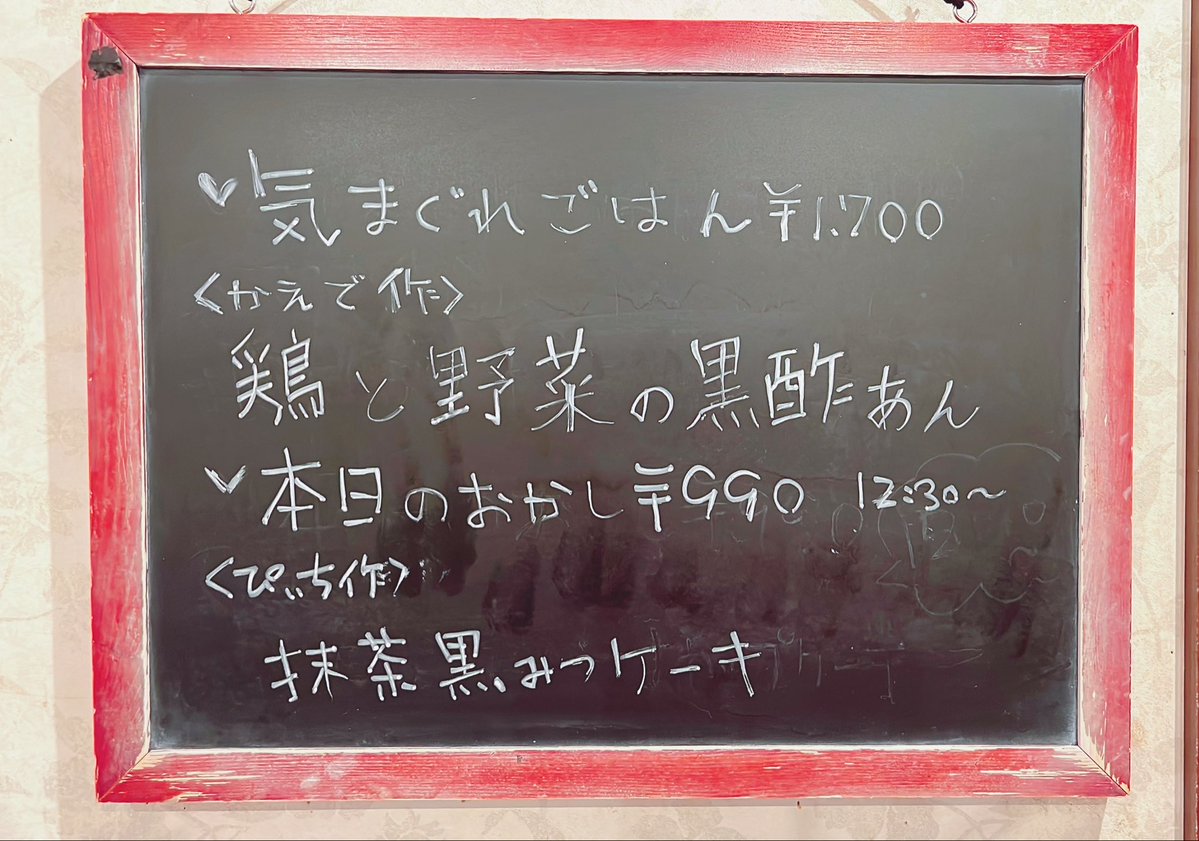 ♥気まぐれごはん¥1.700
<かえで作>
鶏と野菜の黒酢あん
♥本日のおかし¥990 12:30〜
<ぴぃち作>
抹茶黒みつケーキ